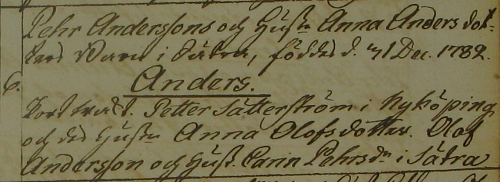 Pehr Anderssons och Hustr Anna Anders dot-
ters Barn i Sätra, föddes d. 21 Dec. 1782.
6. Anders.
Petter Sätterström i Nyköping
och des Hustr Anna Olofsdotter. Olof
Andersson och Hust. Carin Pehrsdr i Sätra